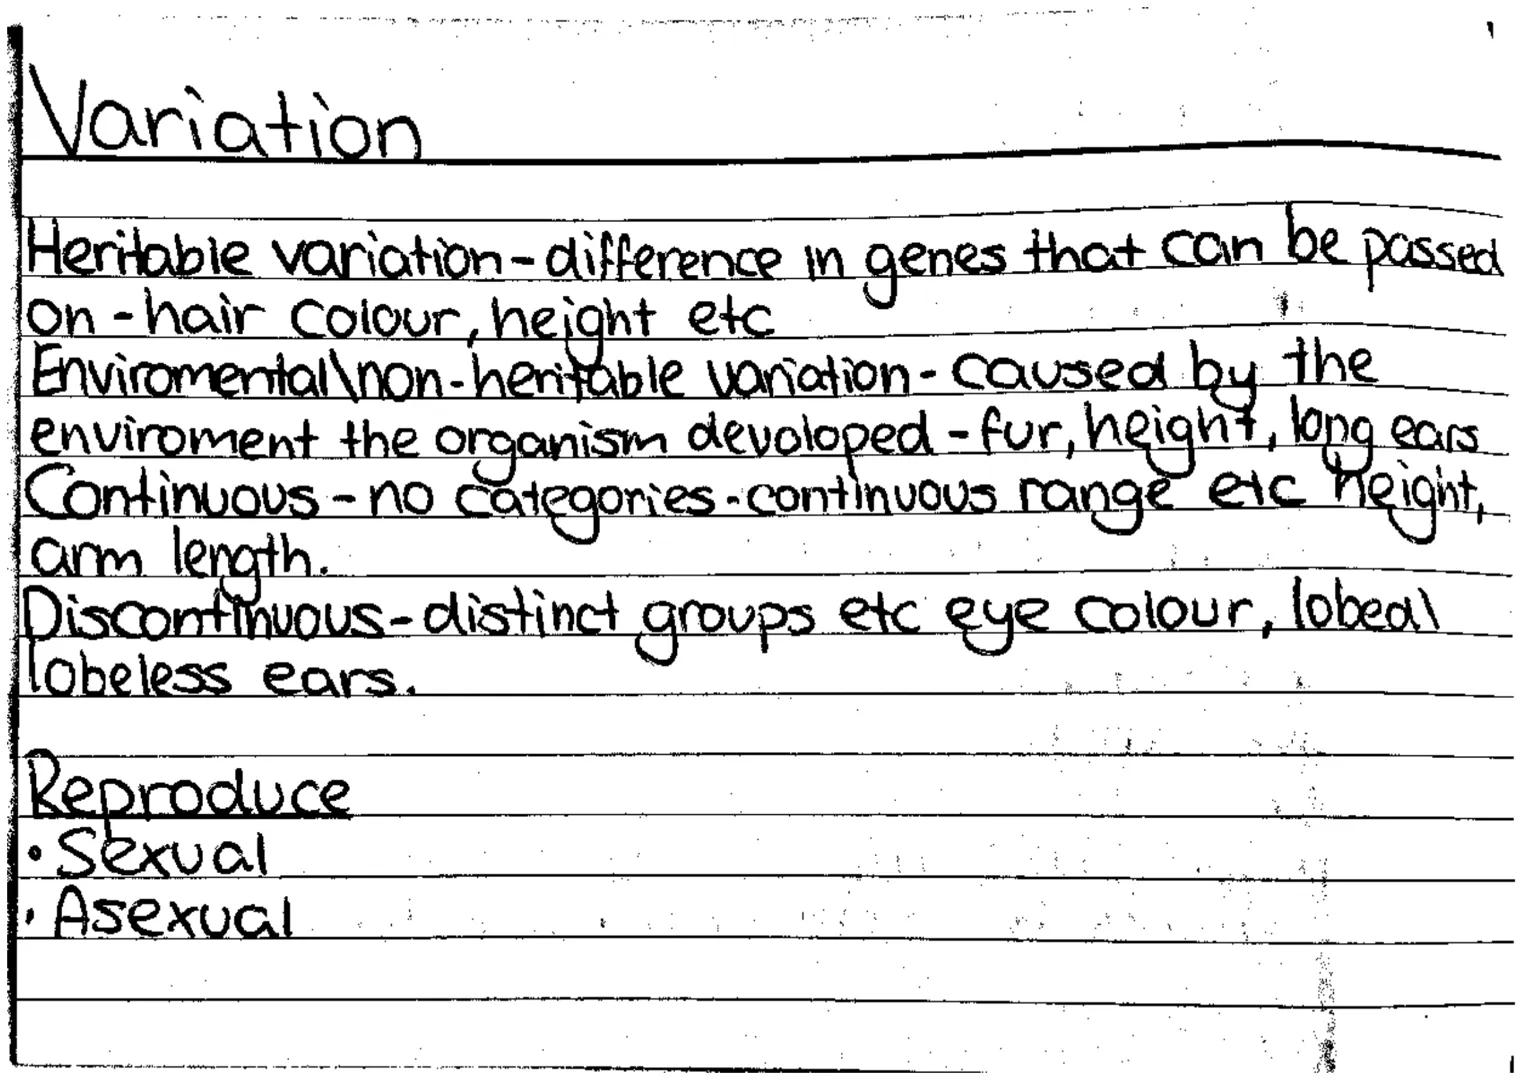 Variation
Heritable variation - difference in genes that can be passed
on - hair colour, height etc
Enviromental\non-heritable variation - caused by the
enviroment the organism devoloped - fur, height, long ears
Continuous - no categories - continuous range etc height,
arm length.
Discontinuous - distinct groups etc eye colour, lobed\
lobeless ears.
Reproduce
• Sexual
• Asexual